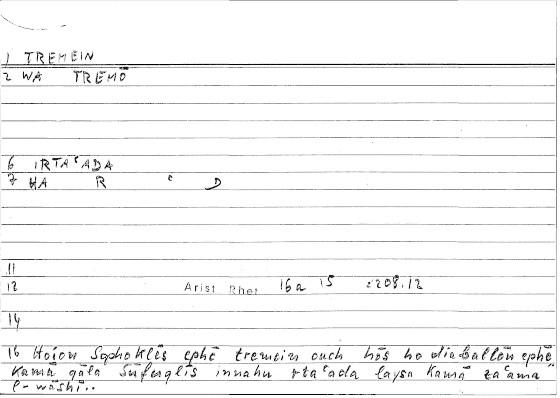 1 TREMEIN
2 WA TREMŌ
6 IRTAʿADA
7 HA R ʿ D
11
12 Arist Rhet 16a 15 :208.12
14
16 Hoion Sophoklēs ephē tremein ouch hōs ho diaballōn ephē
Kamā qāla innahu rtaʿada laysa Kamā zaʿama
l-wāshī..